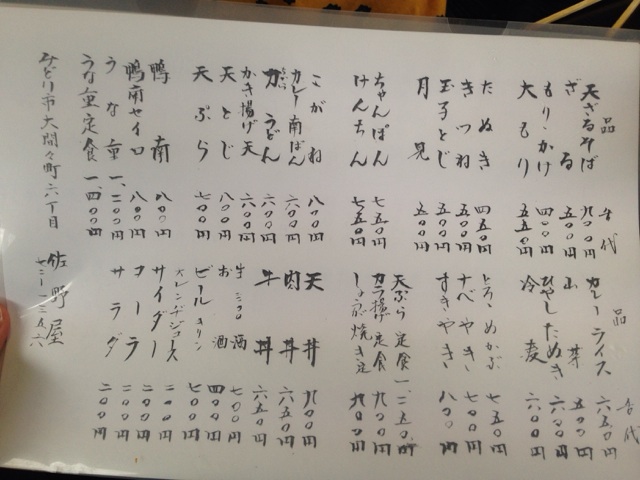 品 代
天ざるそば 九〇〇円
ざる 五〇〇円
もり・かけ 四〇〇円
大もり 五五〇円
たぬき 四五〇円
きつね 五〇〇円
玉子とじ 五〇〇円
月見 五〇〇円
ちゃんぽん 七五〇円
けんちん 七五〇円
こがね 八〇〇円
カレー南ばん 六〇〇円
力うどん 六〇〇円
かき揚げ天 六〇〇円
天とじ 八〇〇円
天ぷら 七〇〇円
鴨南 八〇〇円
鴨南セイロ 八〇〇円
うな重 一、二〇〇円
うな重定食 一、四〇〇円
品 代
カレーライス 六五〇円
山芋 五〇〇円
ひやしたぬき 六〇〇円
冷麦 六〇〇円
とろろめかぶ 七五〇円
なべやき 七五〇円
すきやき 八〇〇円
天ぷら定食 一、二五〇円
揚定食 九〇〇円
しょうが焼き定 九〇〇円
天丼 九〇〇円
肉丼 六五〇円
牛丼 六五〇円
酒 七〇〇円
お酒 四〇〇円
ビールキリン 七〇〇円
オレンジジュース 二〇〇円
サイダー 二〇〇円
コーラ 二〇〇円
サラダ 二〇〇円
みどり市大間々町六丁目 佐野屋
七二ー一二五六